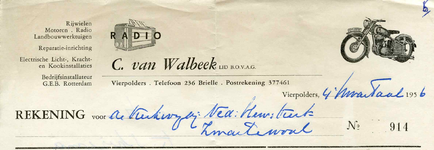 Rijwielen
Motoren . Radio
Landbouwwerktuigen
Reparatie-inrichting
Electrische Licht-, Kracht-
en Kookinstallaties
Bedrijfsinstallateur
G.E.B. Rotterdam
RADIO
C. van Walbeek LID B.O.V.A.G.
Vierpolders . Telefoon 236 Brielle . Postrekening 377461
Vierpolders, 4e kwartaal 1956
REKENING voor de Kerkvoogdij Ned: Herv: Kerk
Zwartewaal
No 914